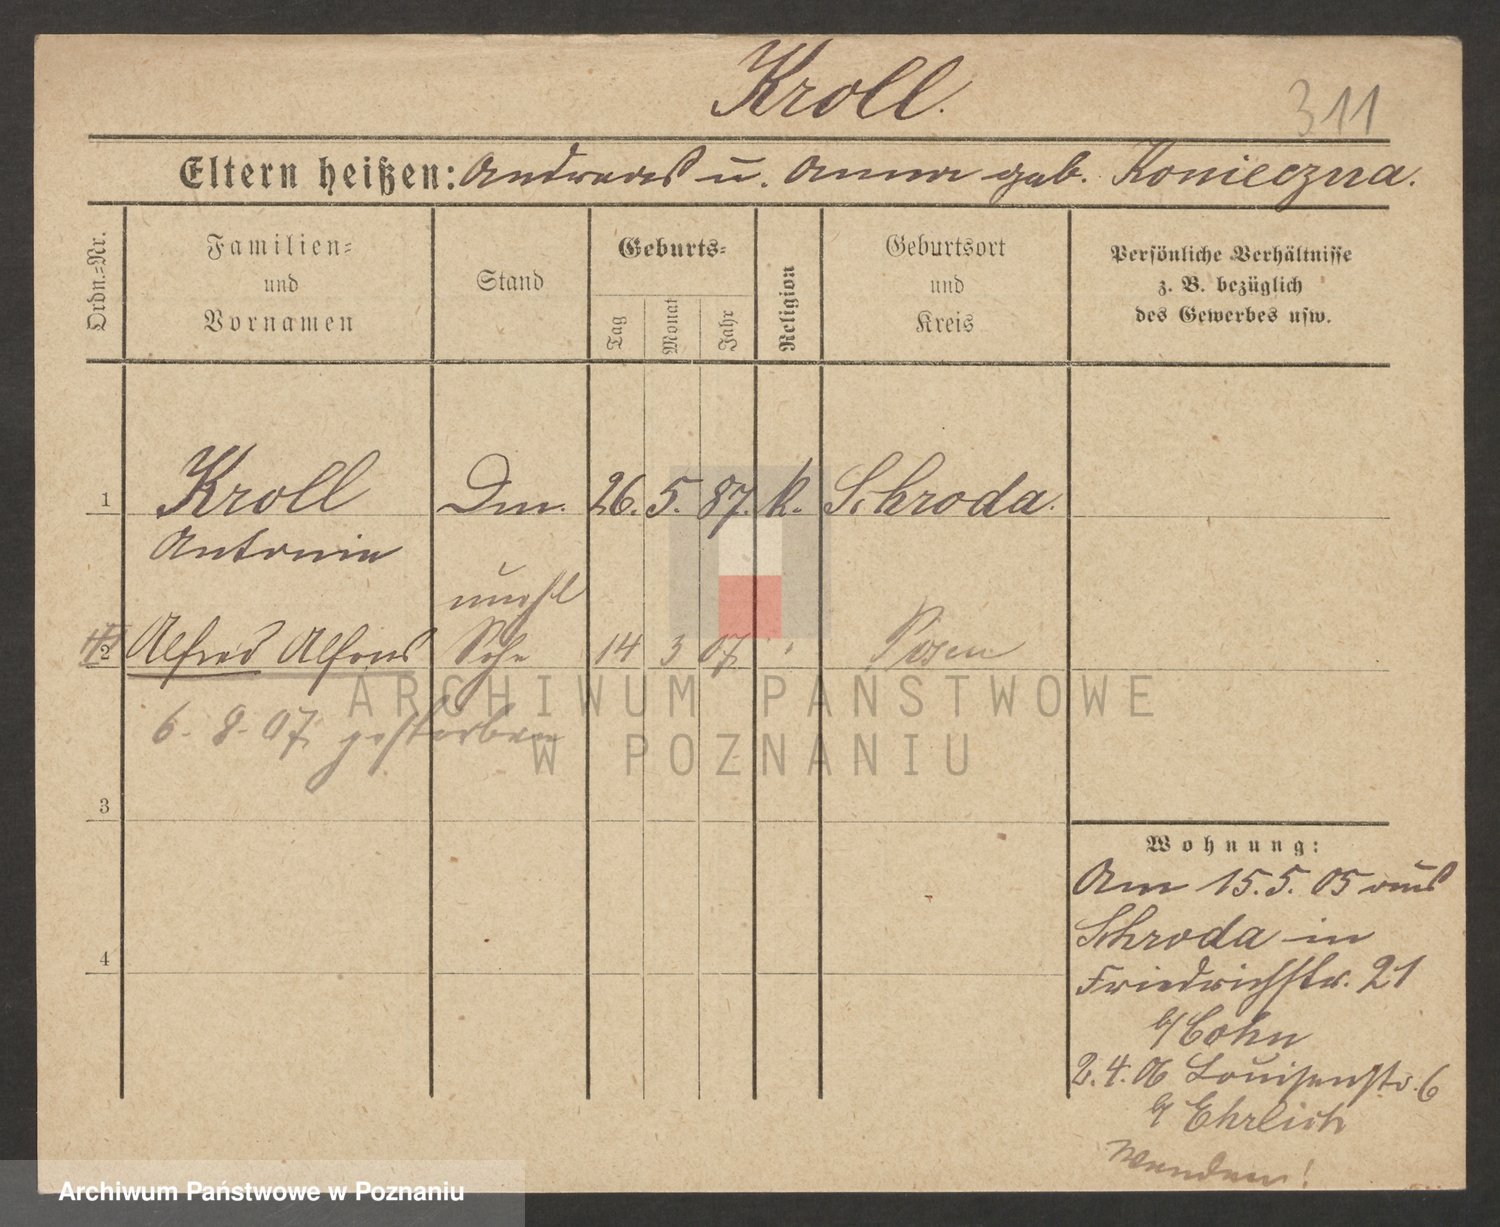 Kroll.
311
Eltern heißen: Andreas u. Anna geb. Konieczna.
Ordn.=Nr.
Familien=
und
Vornamen
Stand
Geburts=
Tag
Monat
Jahr
Religion
Geburtsort
und
Kreis
Persönliche Verhältnisse
z. B. bezüglich
des Gewerbes usw.
1 Kroll Dm. 26. 5. 87. k. Schroda.
Antonie
unehl
2 Alfred Alfons Sohn 14 3 07 " Posen
6. 8. 07 gestorben
3
4
Wohnung:
Am 15.5.05 aus
Schroda in
Friedrichstr. 21
b/ Cohn
2.4.06 Louisenstr. 6
b/ Ehrlich
Wenden!
ARCHIWUM PAŃSTWOWE
W POZNANIU
Archiwum Państwowe w Poznaniu